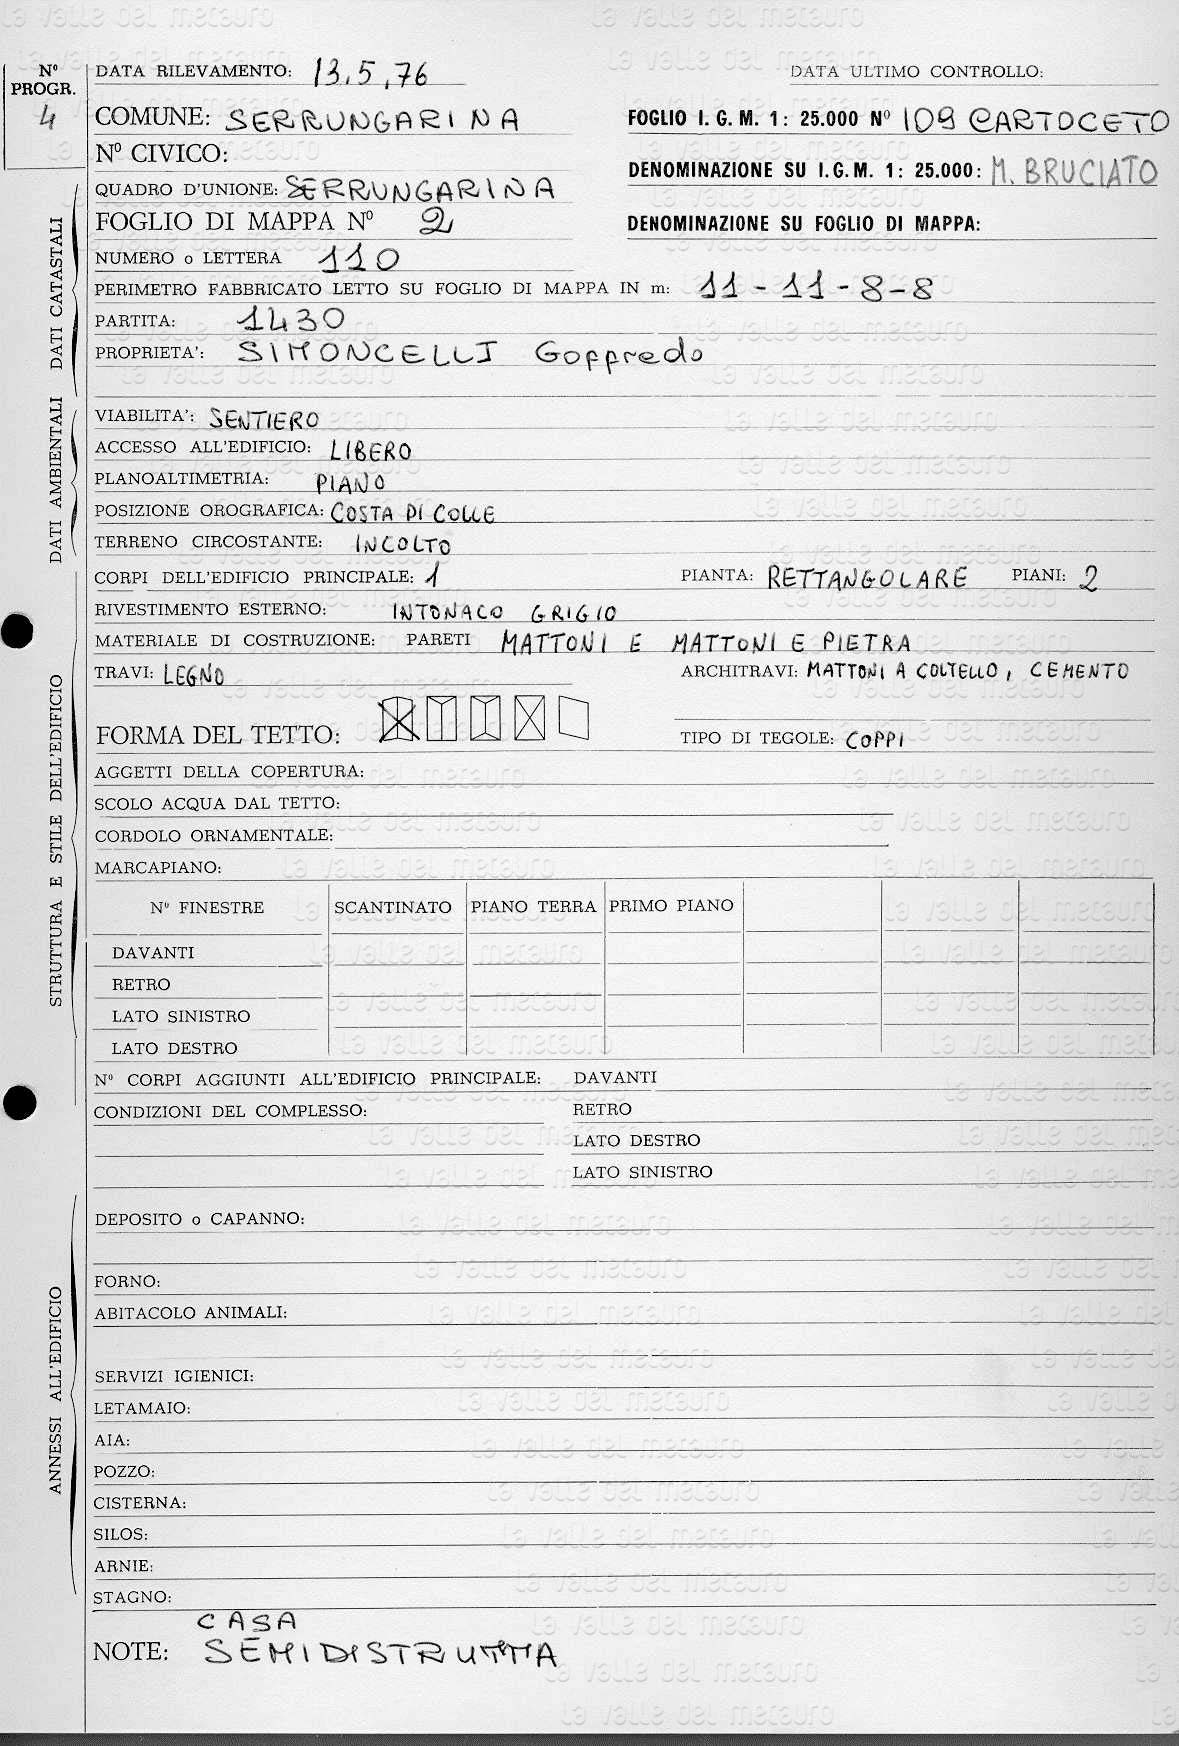 Nº PROGR. 4
DATA RILEVAMENTO: 13.5.76 DATA ULTIMO CONTROLLO:
COMUNE: SERRUNGARINA FOGLIO I. G. M. 1: 25.000 Nº 109 CARTOCETO
Nº CIVICO:
DENOMINAZIONE SU I.G.M. 1: 25.000: M. BRUCIATO
QUADRO D'UNIONE: SERRUNGARINA
FOGLIO DI MAPPA Nº 2 DENOMINAZIONE SU FOGLIO DI MAPPA:
NUMERO o LETTERA 110
PERIMETRO FABBRICATO LETTO SU FOGLIO DI MAPPA IN m: 11 - 11 - 8 - 8
PARTITA: 1430
PROPRIETA': SIMONCELLI Goffredo
DATI CATASTALI
VIABILITA': SENTIERO
ACCESSO ALL'EDIFICIO: LIBERO
PLANOALTIMETRIA: PIANO
POSIZIONE OROGRAFICA: COSTA DI COLLE
TERRENO CIRCOSTANTE: INCOLTO
DATI AMBIENTALI
CORPI DELL'EDIFICIO PRINCIPALE: 1 PIANTA: RETTANGOLARE PIANI: 2
RIVESTIMENTO ESTERNO: INTONACO GRIGIO
MATERIALE DI COSTRUZIONE: PARETI MATTONI E MATTONI E PIETRA
TRAVI: LEGNO ARCHITRAVI: MATTONI A COLTELLO, CEMENTO
FORMA DEL TETTO: TIPO DI TEGOLE: COPPI
AGGETTI DELLA COPERTURA:
SCOLO ACQUA DAL TETTO:
CORDOLO ORNAMENTALE:
MARCAPIANO:
Nº FINESTRE SCANTINATO PIANO TERRA PRIMO PIANO
DAVANTI
RETRO
LATO SINISTRO
LATO DESTRO
STRUTTURA E STILE DELL'EDIFICIO
Nº CORPI AGGIUNTI ALL'EDIFICIO PRINCIPALE: DAVANTI
CONDIZIONI DEL COMPLESSO: RETRO
LATO DESTRO
LATO SINISTRO
DEPOSITO o CAPANNO:
FORNO:
ABITACOLO ANIMALI:
SERVIZI IGIENICI:
LETAMAIO:
AIA:
POZZO:
CISTERNA:
SILOS:
ARNIE:
STAGNO:
ANNESSI ALL'EDIFICIO
CASA
NOTE: SEMIDISTRUTTA
la valle del metauro